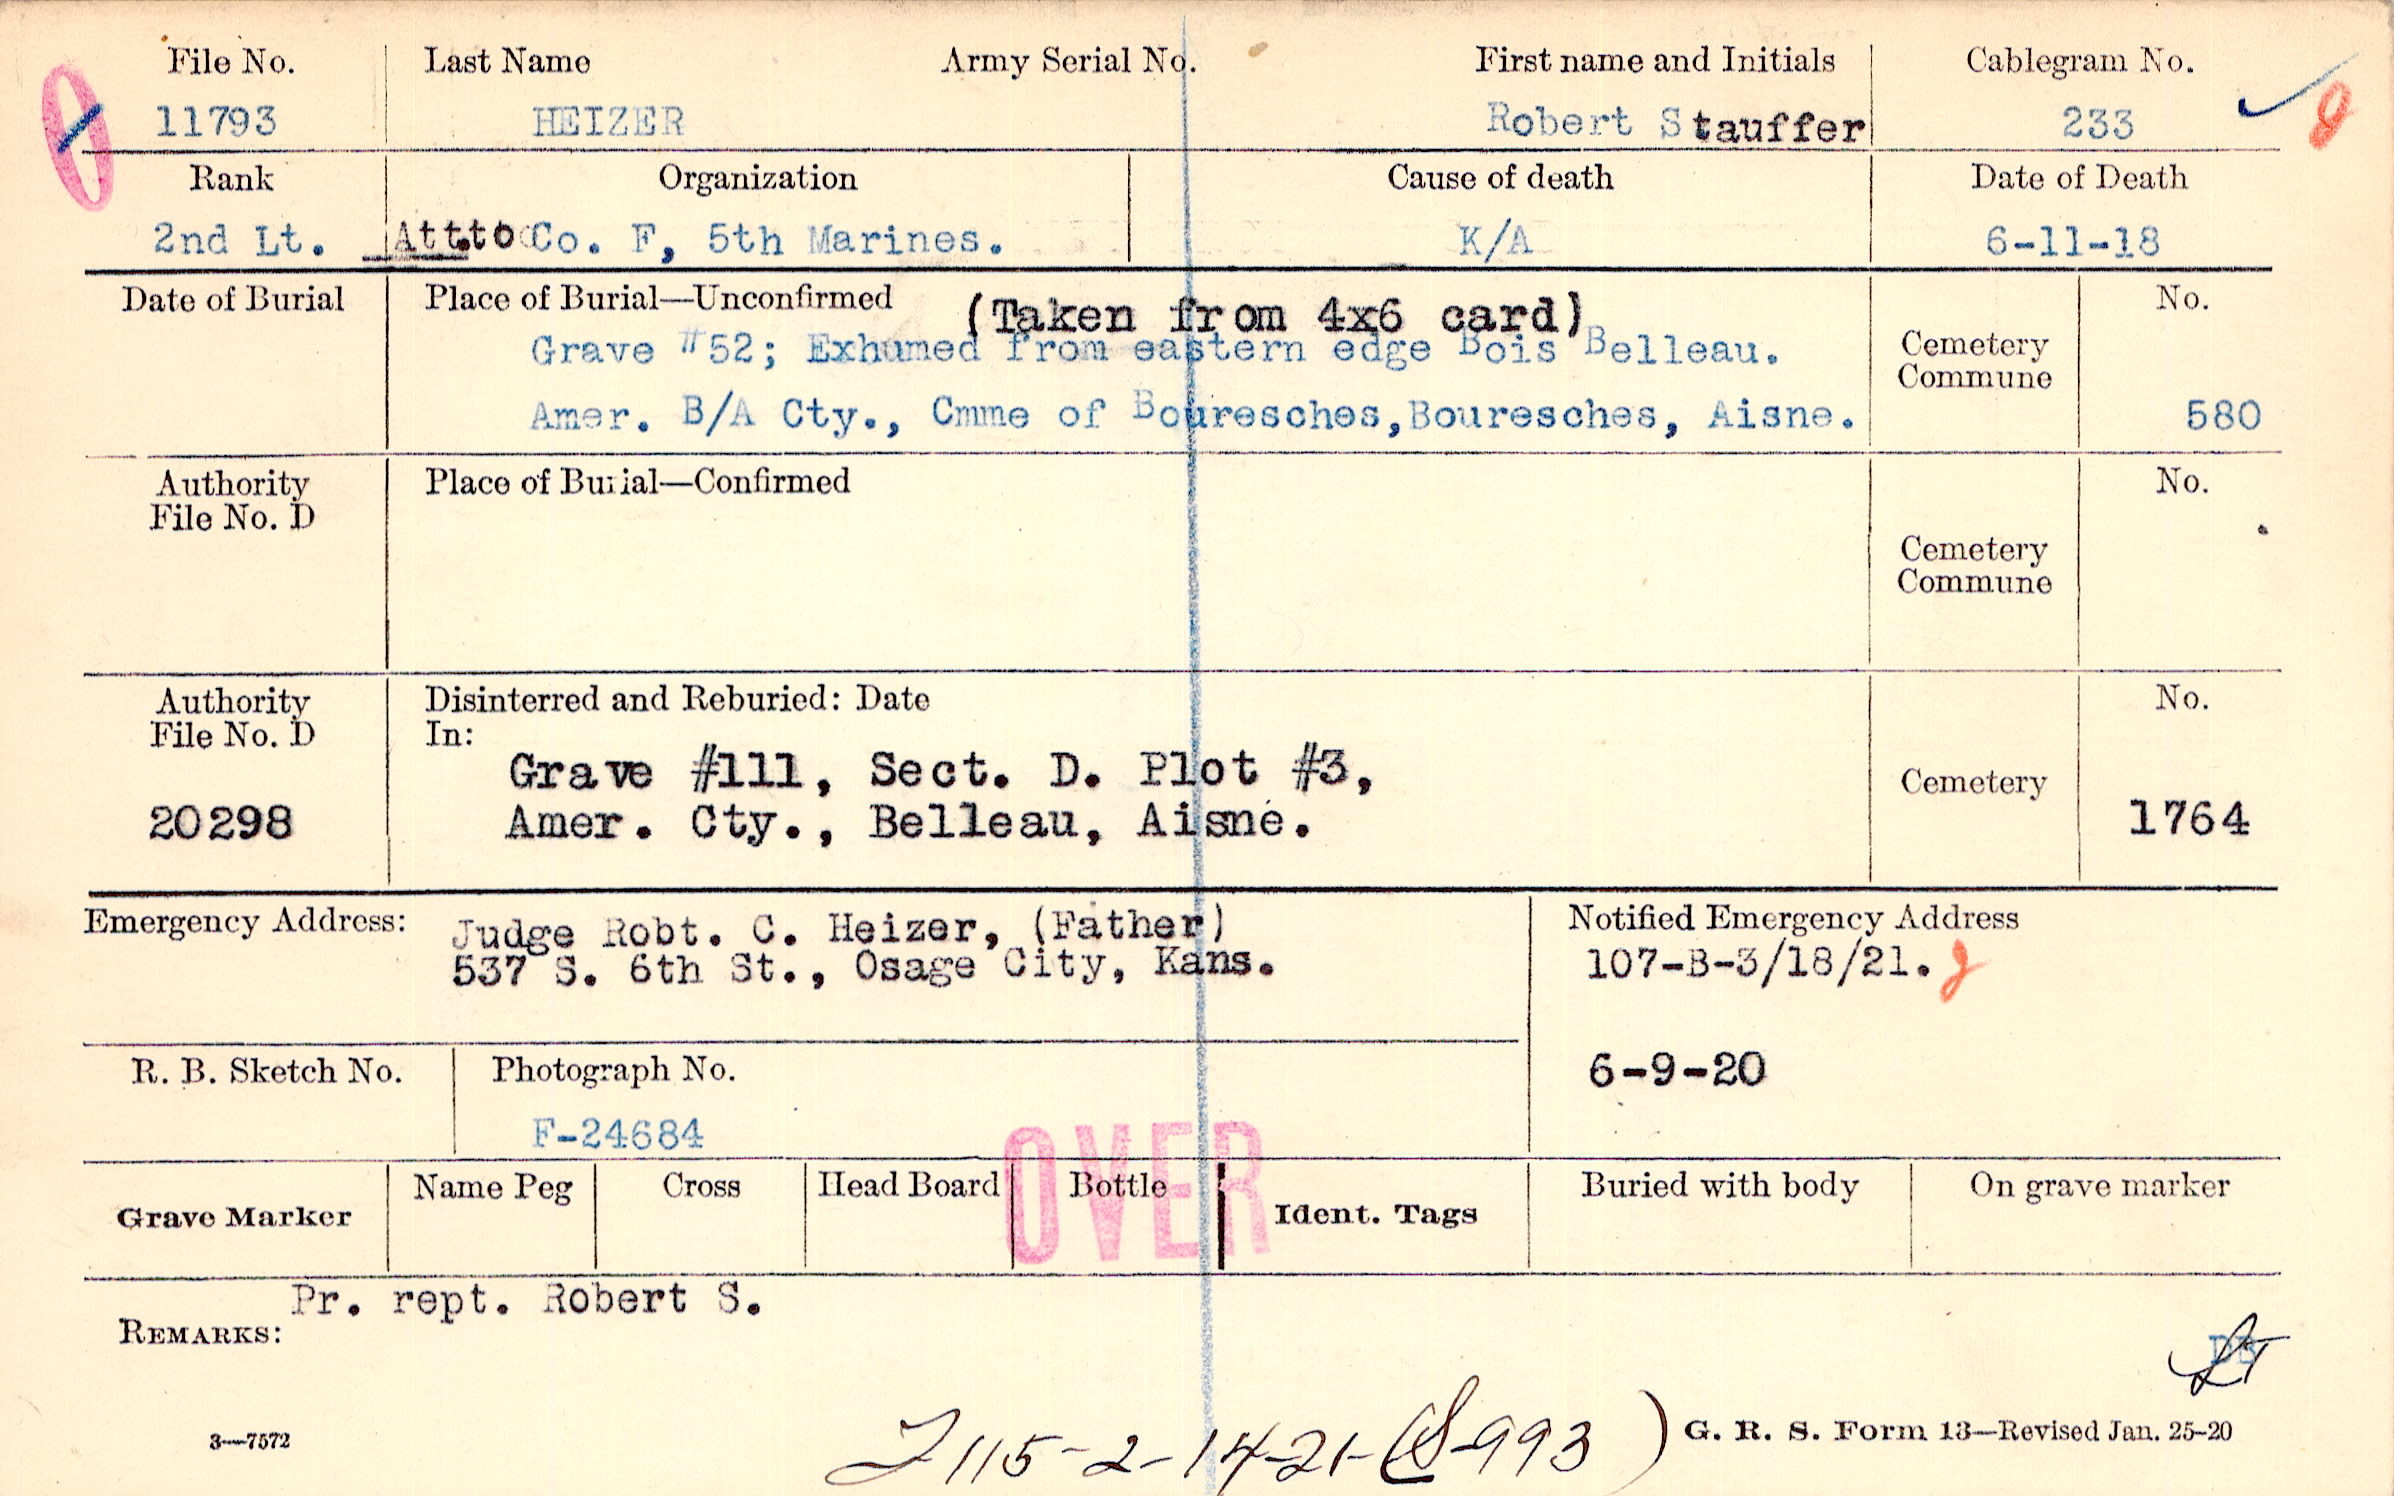 File No. Last Name Army Serial No. First name and Initials Cablegram No.
11793 HEIZER Robert Stauffer 233
Rank Organization Cause of death Date of Death
2nd Lt. Att.to Co. F, 5th Marines. K/A 6-11-18
Date of Burial Place of Burial—Unconfirmed (Taken from 4x6 card) No.
Grave #52; Exhumed from eastern edge Bois Belleau. Cemetery
Commune
Amer. B/A Cty., Cmme of Bouresches, Bouresches, Aisne. 580
Authority Place of Burial—Confirmed No.
File No. D
Cemetery
Commune
Authority Disinterred and Reburied: Date No.
File No. D In:
Grave #111, Sect. D. Plot #3, Cemetery
20298 Amer. Cty., Belleau, Aisne. 1764
Emergency Address: Judge Robt. C. Heizer, (Father) Notified Emergency Address
537 S. 6th St., Osage City, Kans. 107-B-3/18/21.
R. B. Sketch No. Photograph No. 6-9-20
F-24684
OVER
Grave Marker Name Peg Cross Head Board Bottle Ident. Tags Buried with body On grave marker
Pr. rept. Robert S.
REMARKS:
DB
115-2-14-21-(S-993)
3—7572 G. R. S. Form 13—Revised Jan. 25-20